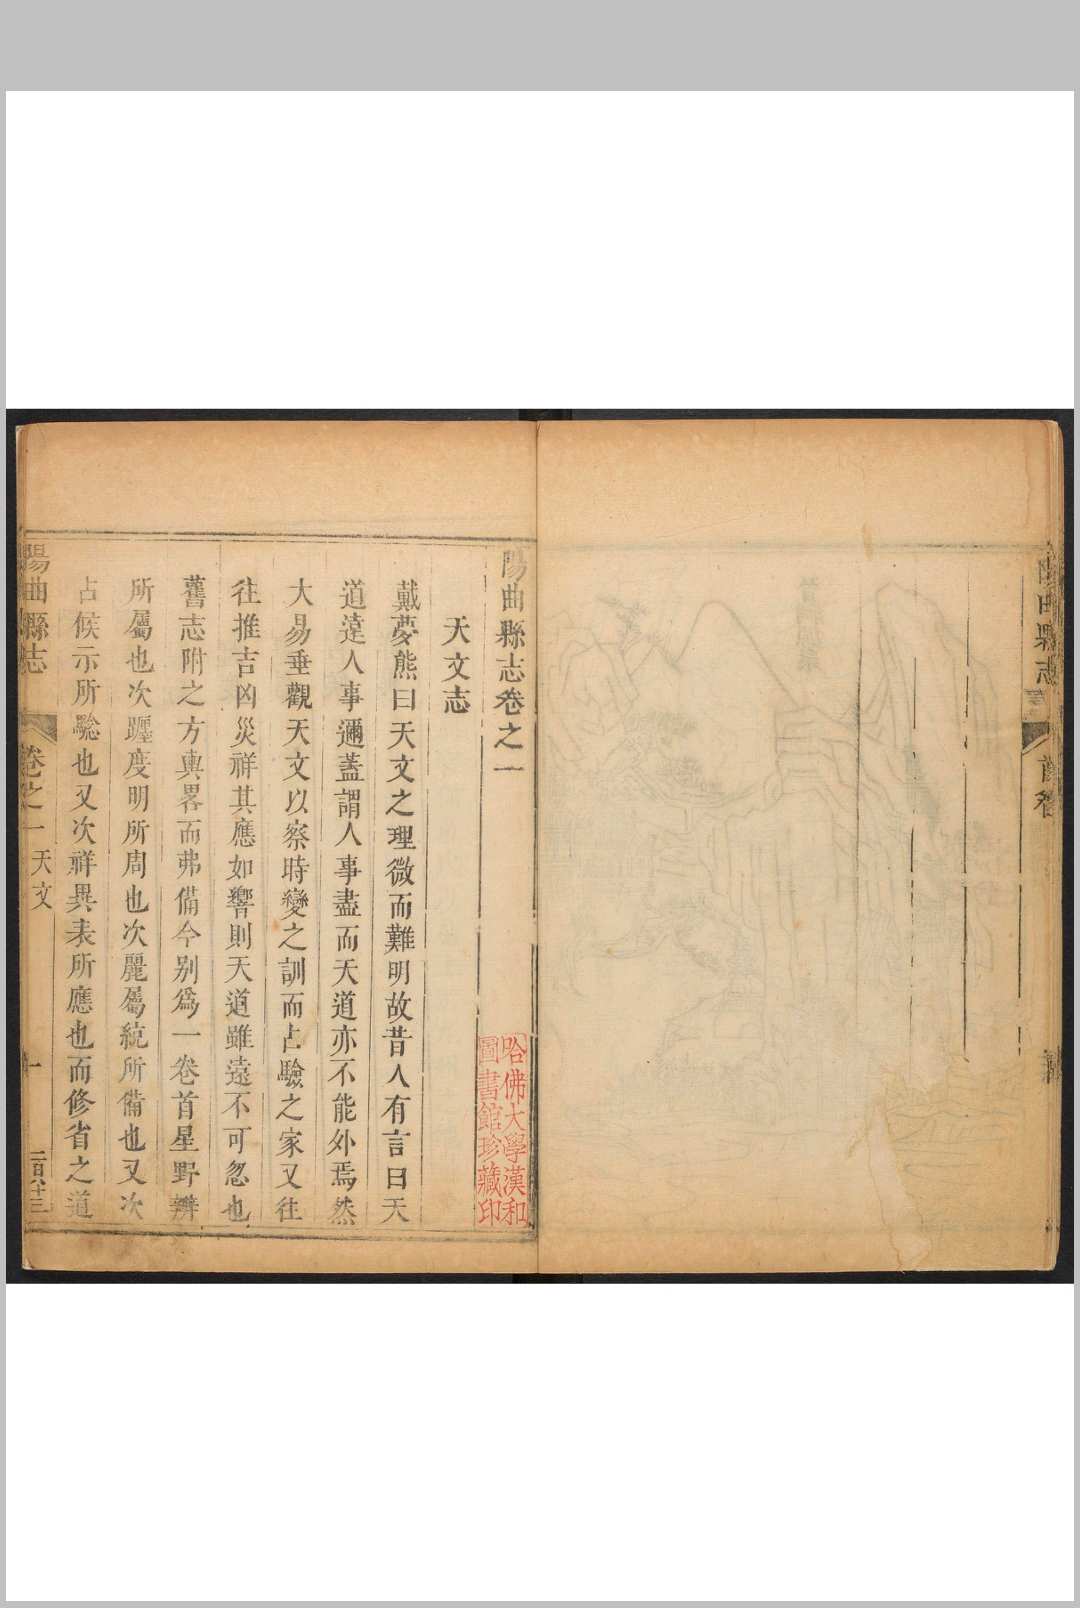 陽曲縣志
首卷
陽曲縣志卷之一
哈佛大學漢和
圖書館珍藏印
天文志
戴夢熊曰天文之理微而難明故昔人有言曰天
道遠人事邇蓋謂人事盡而天道亦不能外焉然
大易垂觀天文以察時變之訓而占驗之家又往
往推吉凶災祥其應如響則天道雖遠不可忽也
舊志附之方輿畧而弗備今别爲一卷首星野辨
所屬也次躔度明所周也次麗屬統所備也又次
占候示所驗也又次祥異表所應也而修省之道
陽曲縣志
卷之一 天文
一
二百八十三